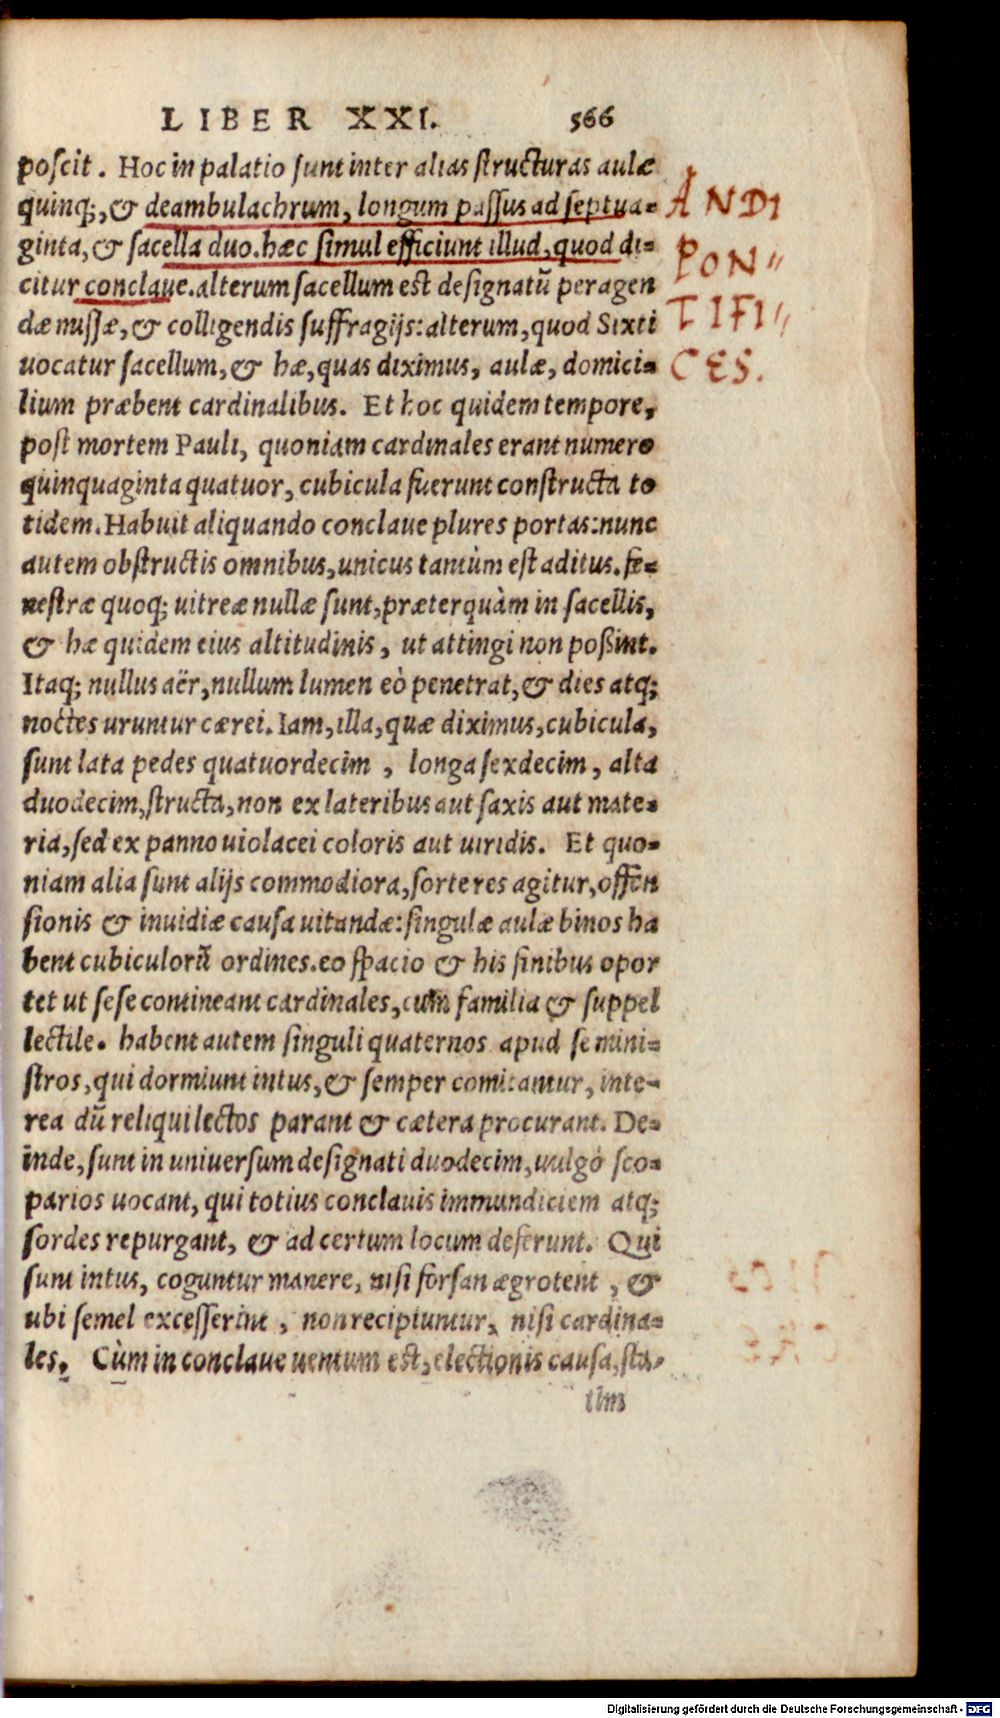 LIBER XXI. 566
poscit. Hoc in palatio sunt inter alias structuras aulæ
quinq;, & deambulachrum, longum passus ad septua=
ginta, & sacella duo. hæc simul efficiunt illud, quod di=
citur conclaue. alterum sacellum est designatũ peragen
dæ missæ, & colligendis suffragijs: alterum, quod Sixti
uocatur sacellum, & hæ, quas diximus, aulæ, domici=
lium præbent cardinalibus. Et hoc quidem tempore,
post mortem Pauli, quoniam cardinales erant numero
quinquaginta quatuor, cubicula fuerunt constructa to
tidem. Habuit aliquando conclaue plures portas: nunc
autem obstructis omnibus, unicus tantùm est aditus. fe=
nestræ quoq; uitreæ nullæ sunt, præterquàm in sacellis,
& hæ quidem eius altitudinis, ut attingi non poßint.
Itaq; nullus aër, nullum lumen eò penetrat, & dies atq;
noctes uruntur cærei. Iam, illa, quæ diximus, cubicula,
sunt lata pedes quatuordecim, longa sexdecim, alta
duodecim, structa, non ex lateribus aut saxis aut mate=
ria, sed ex panno uiolacei coloris aut uiridis. Et quo=
niam alia sunt alijs commodiora, sorte res agitur, offen
sionis & inuidiæ causa uitandæ: singulæ aulæ binos ha
bent cubiculorũ ordines. eo spacio & his finibus opor
tet ut sese contineant cardinales, cum familia & suppel
lectile. habent autem singuli quaternos apud se mini=
stros, qui dormiunt intus, & semper comitantur, inte=
rea dũ reliqui lectos parant & cætera procurant. De=
inde, sunt in uniuersum designati duodecim, uulgò sco=
parios uocant, qui totius conclauis immundiciem atq;
sordes repurgant, & ad certum locum deferunt. Qui
sunt intus, coguntur manere, nisi forsan ægrotent, &
ubi semel excesserint, non recipiuntur, nisi cardina=
les. Cùm in conclaue uentum est, electionis causa, sta=
tim
ANDI
PON"
TIFI"
CES.
Digitalisierung gefördert durch die Deutsche Forschungsgemeinschaft - DFG